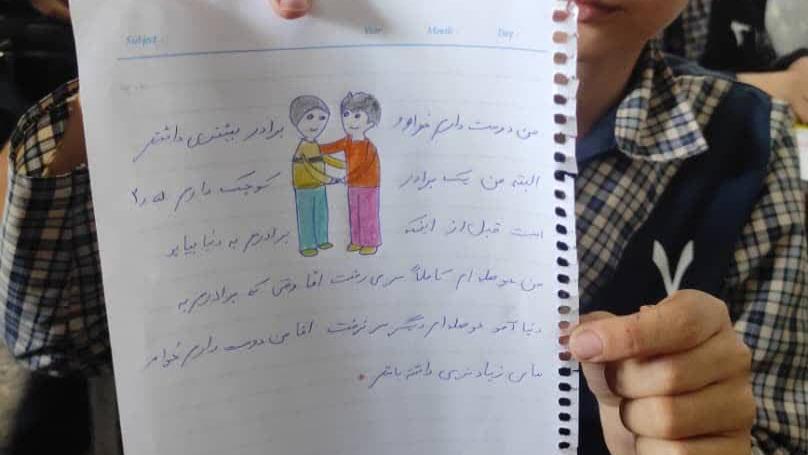 Subject: Year: Month: Day:
من دوست دارم خواهر و برادر بیشتری داشتم
البته من یک برادر کوچک دارم
است قبل از اینکه برادرم به دنیا بیاید
من حوصله ام کاملاً سر می رفت اما وقتی که برادرم به
دنیا آمد حوصله ام دیگر سر نرفت اما من دوست دارم خواهر
های زیادتری داشته باشم.